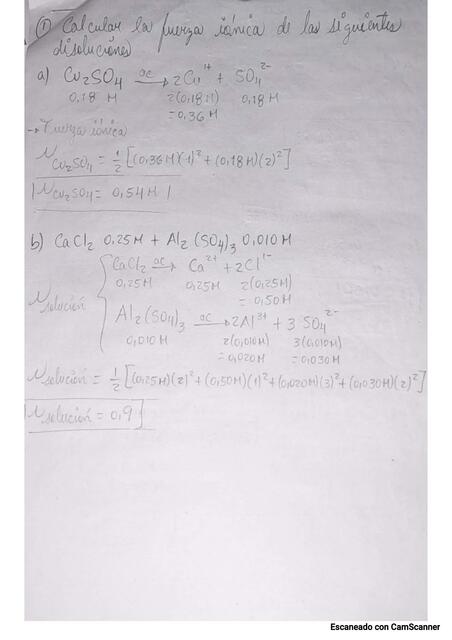 ① Calcular la fuerza iónica de las siguientes
disoluciones
a) Cu₂SO₄ —ac→ 2Cu¹⁺ + SO₄²⁻
0,18 M 2(0,18M) 0,18 M
= 0,36 M
→ Fuerza iónica
μ Cu₂SO₄ = 1/2 [(0,36M)(1)² + (0,18M)(2)²]
μ Cu₂SO₄ = 0,54M
b) CaCl₂ 0,25M + Al₂(SO₄)₃ 0,010M
CaCl₂ —ac→ Ca²⁺ + 2Cl¹⁻
0,25M 0,25M 2(0,25M)
= 0,50M
μ solución {
Al₂(SO₄)₃ —ac→ 2Al³⁺ + 3 SO₄²⁻
0,010M 2(0,010M) 3(0,010M)
= 0,020M = 0,030M
μ solución = 1/2 [(0,25M)(2)² + (0,50M)(1)² + (0,020M)(3)² + (0,030M)(2)²]
μ solución = 0,9
Escaneado con CamScanner